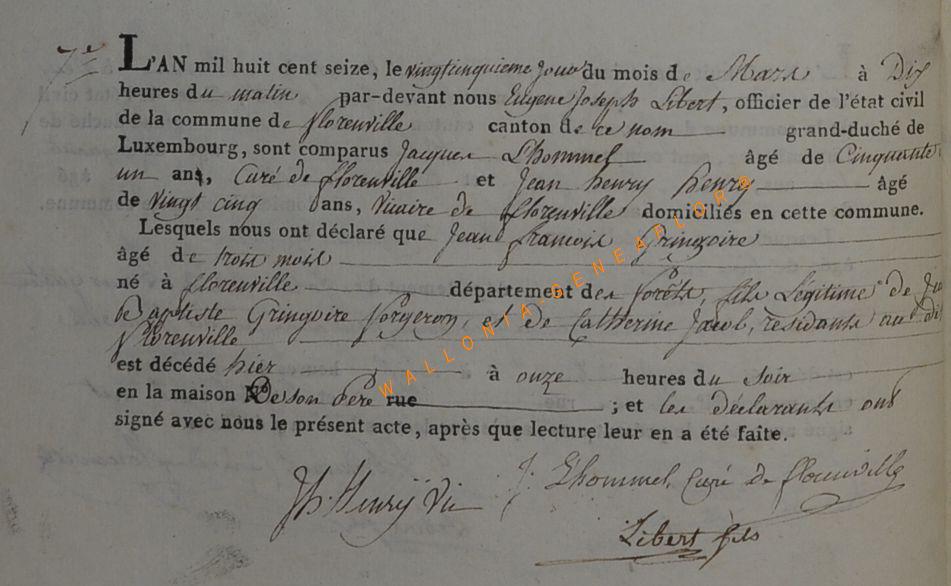 7e
L'AN mil huit cent seize, le vingtcinquieme Jour du mois de Mars à Dix
heures du matin par-devant nous Eugene Joseph Libert, officier de l'état civil
de la commune de florenville canton de ce nom grand-duché de
Luxembourg, sont comparus Jacques Lhommel âgé de Cinquante
un ans, Curé de florenville et Jean henry henry âgé
de Vingt cinq ans, Vicaire de florenville domiciliés en cette commune.
Lesquels nous ont déclaré que Jean francois Gringoire
âgé de trois mois
né à florenville département des forêts, fils Légitime de
Baptiste Gringoire forgeron, et de Catherine Jacob, residants au dit
florenville
est décédé hier à onze heures du soir
en la maison De son Pere rue ; et les déclarants ont
signé avec nous le présent acte, après que lecture leur en a été faite.
Jh. Henrÿ Vic J. Lhommel Curé de florenville
Libert fils
WALLONIA-GENEAFLOR®